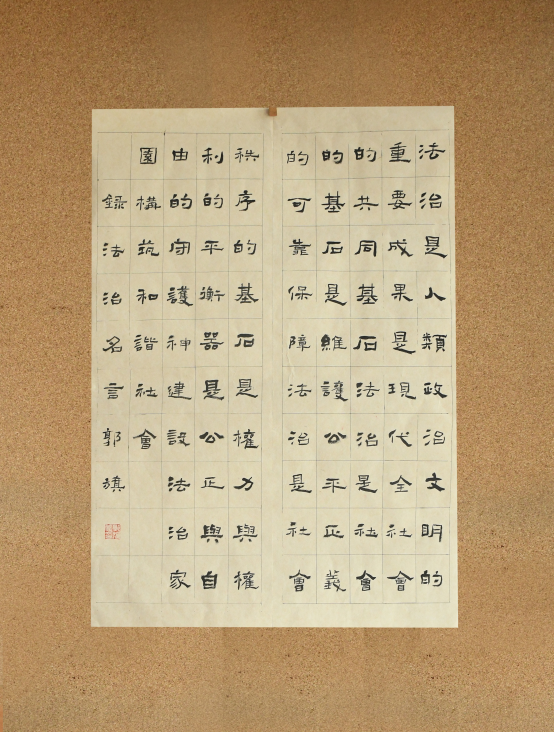 法治是人類政治文明的
重要成果是現代全社會
的共同基石法治是社會
的基石是維護公平正義
的可靠保障法治是社會
秩序的基石是權力與權
利的平衡器是公正與自
由的守護神建設法治家
園構筑和諧社會
錄法治名言郭旗